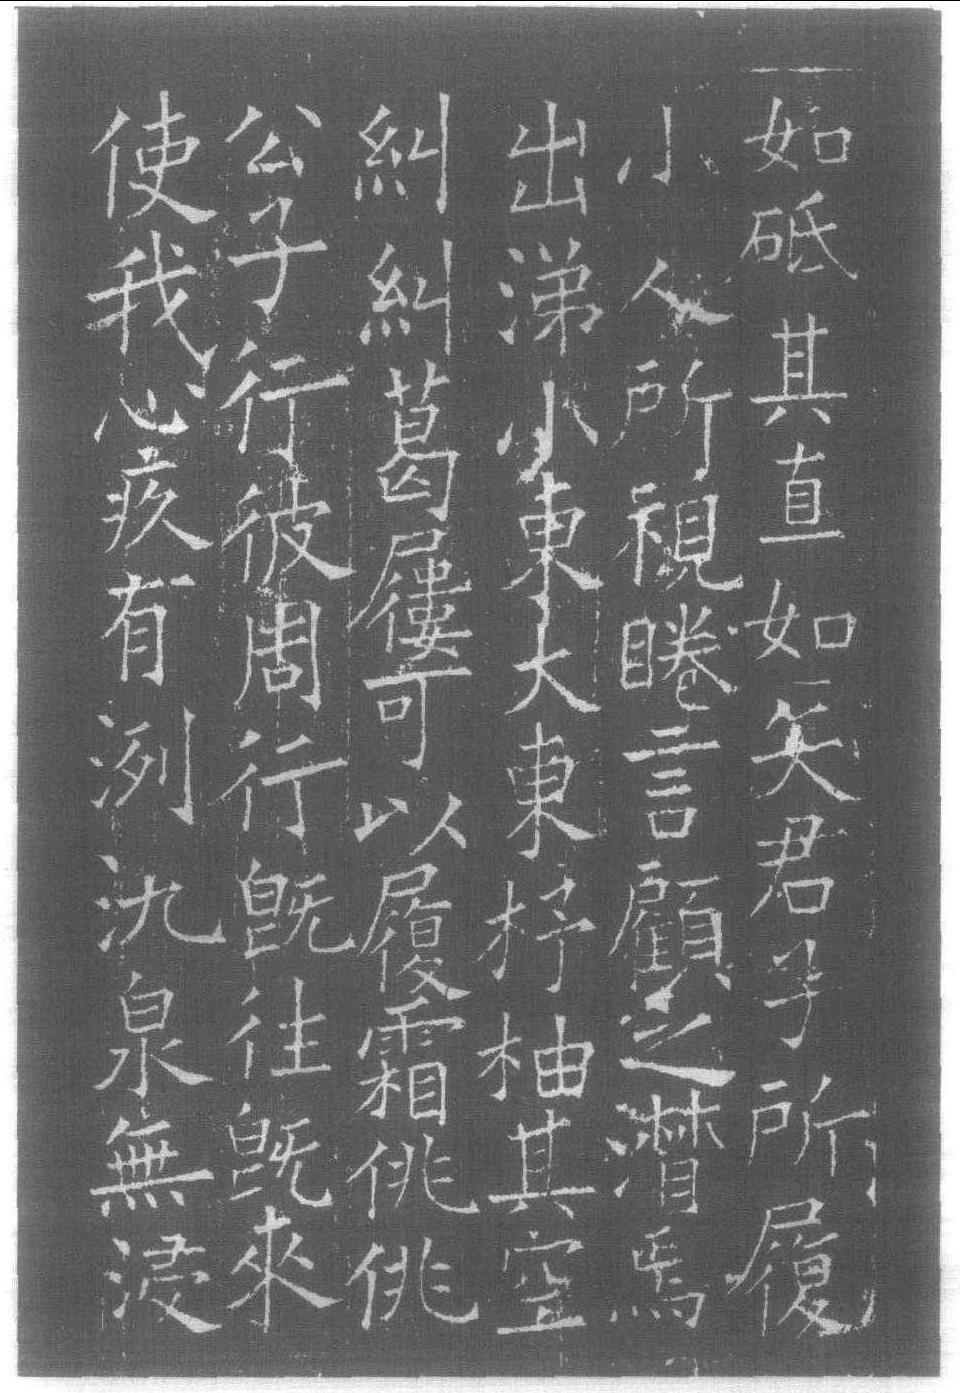 如砥其直如矢君子所履
小人所視睠言顧之潸焉
出涕小東大東杼柚其空
糾糾葛屨可以履霜佻佻
公子行彼周行既往既來
使我心疚有洌氿泉無浸